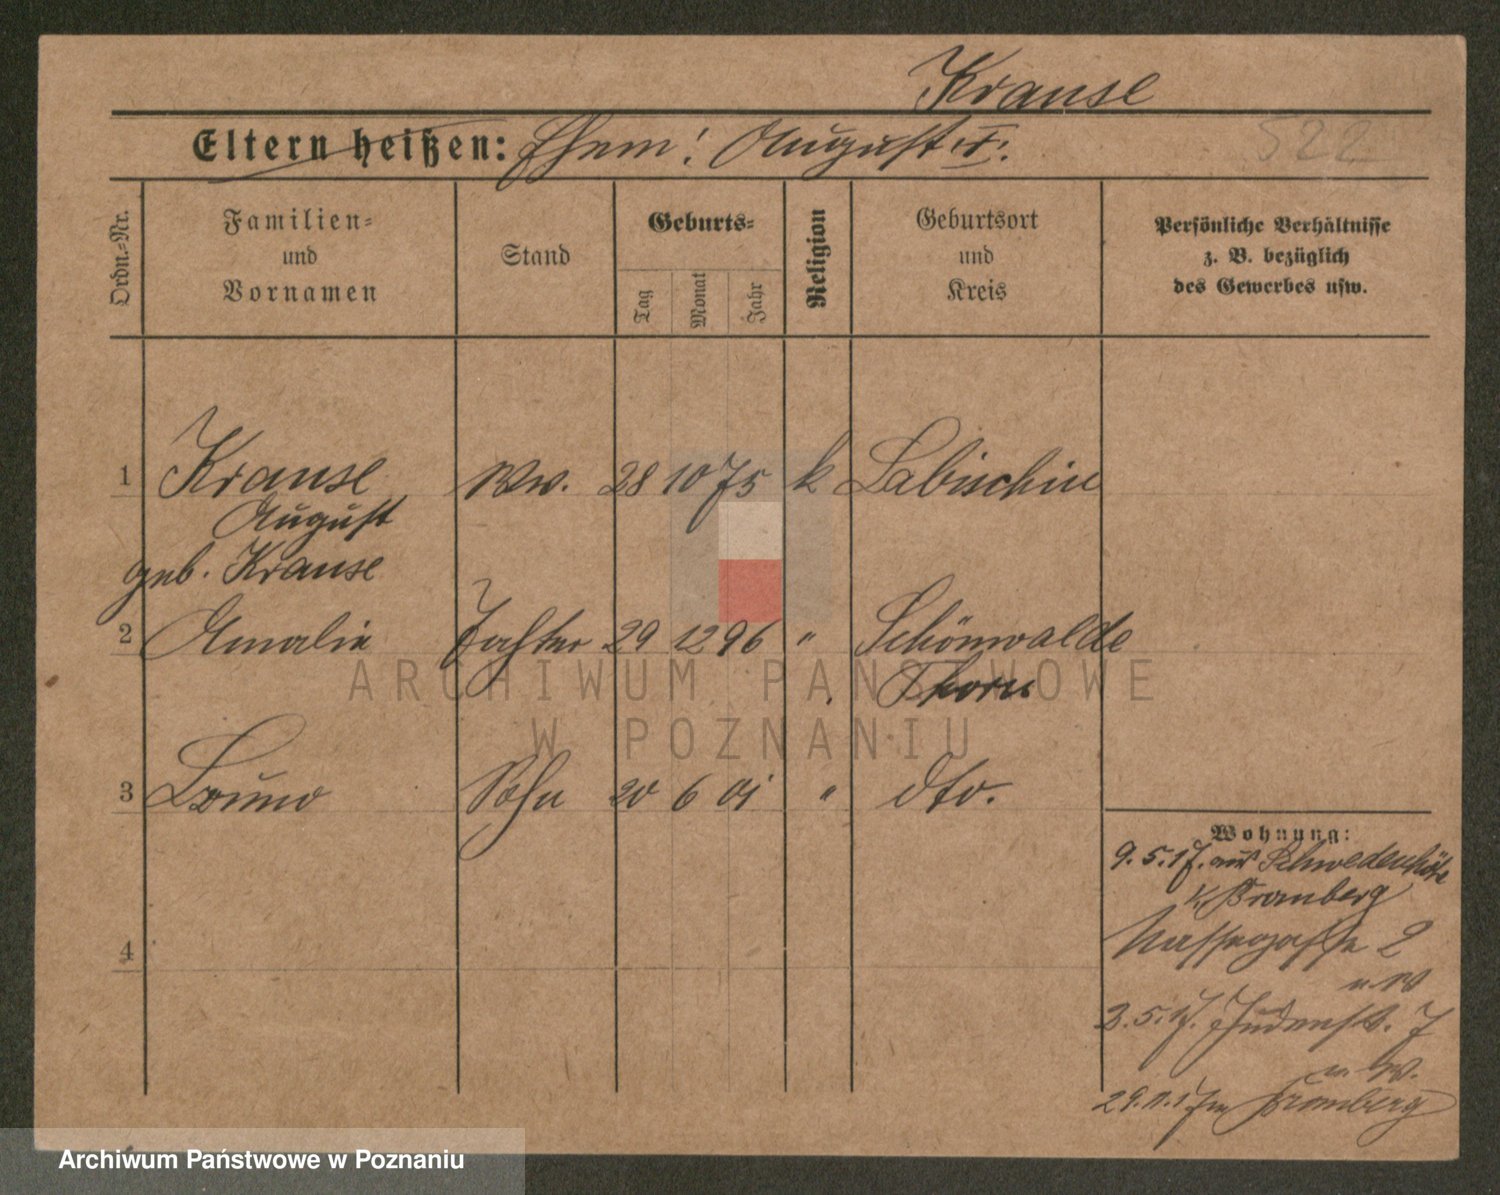 Krause
Eltern heißen: Ehem: August †.
522
Ordn.-Nr.
Familien-
und
Vornamen
Stand
Geburts-
Tag
Monat
Jahr
Religion
Geburtsort
und
Kreis
Persönliche Verhältnisse
z. B. bezüglich
des Gewerbes usw.
1 Krause Ww. 28 10 75 k Labischin
August
geb. Krause
2 Amalie Tochter 29 12 96 " Schönwalde
Thorn
3 Bruno Sohn 20 6 01 " dto.
4
Wohnung:
9.5.17. aus Schwedenhöhe
k. Bromberg
Wassergasse 2
3.5.17. Judenstr. 7
29.11.17 Bromberg
ARCHIWUM PAŃSTWOWE
W POZNANIU
Archiwum Państwowe w Poznaniu